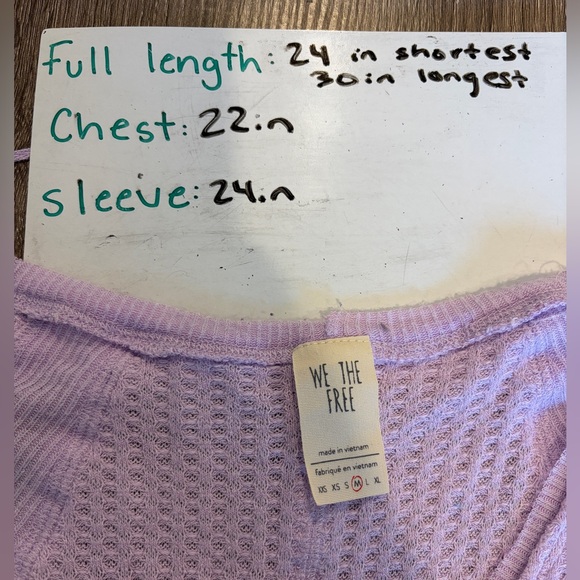 Full length: 24 in shortest
30in longest
Chest: 22in
sleeve: 24in
WE THE
FREE
made in vietnam
fabriqué en vietnam
XXS XS S M L XL